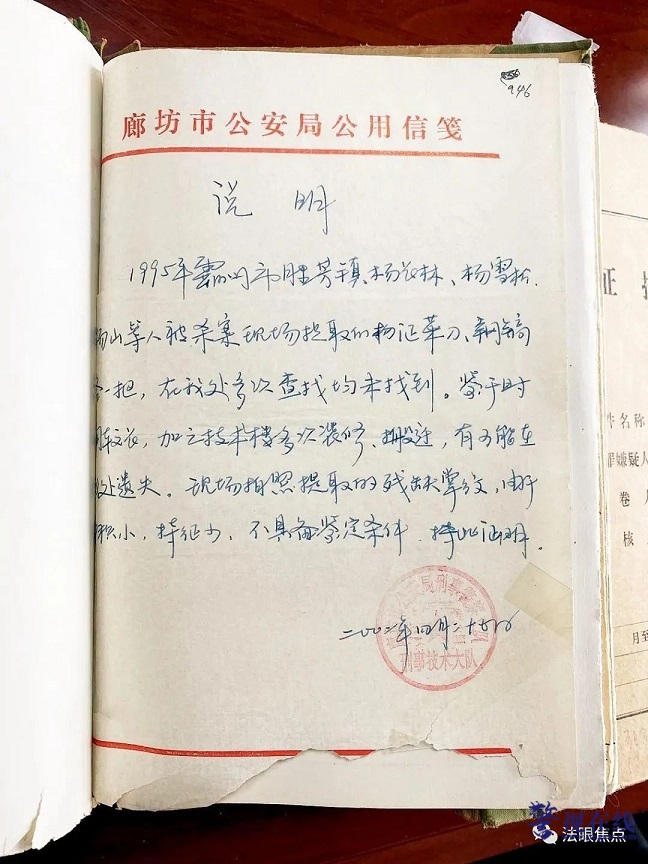 946
廊坊市公安局公用信笺
说 明
1995年霸州市胜芳镇杨长林、杨雪松、
山等人被杀案现场提取的物证菜刀、钢镐
各一把，在我处多次查找均未找到。鉴于时
间较长，加之技术楼多次装修、搬迁，有可能在
处遗失。现场拍照提取的残缺掌纹，由于
积小，特征少，不具备鉴定条件。特此说明。
二〇〇二年四月二十
刑事技术大队
证
件名称
罪嫌疑人
卷
核
月至
法眼焦点